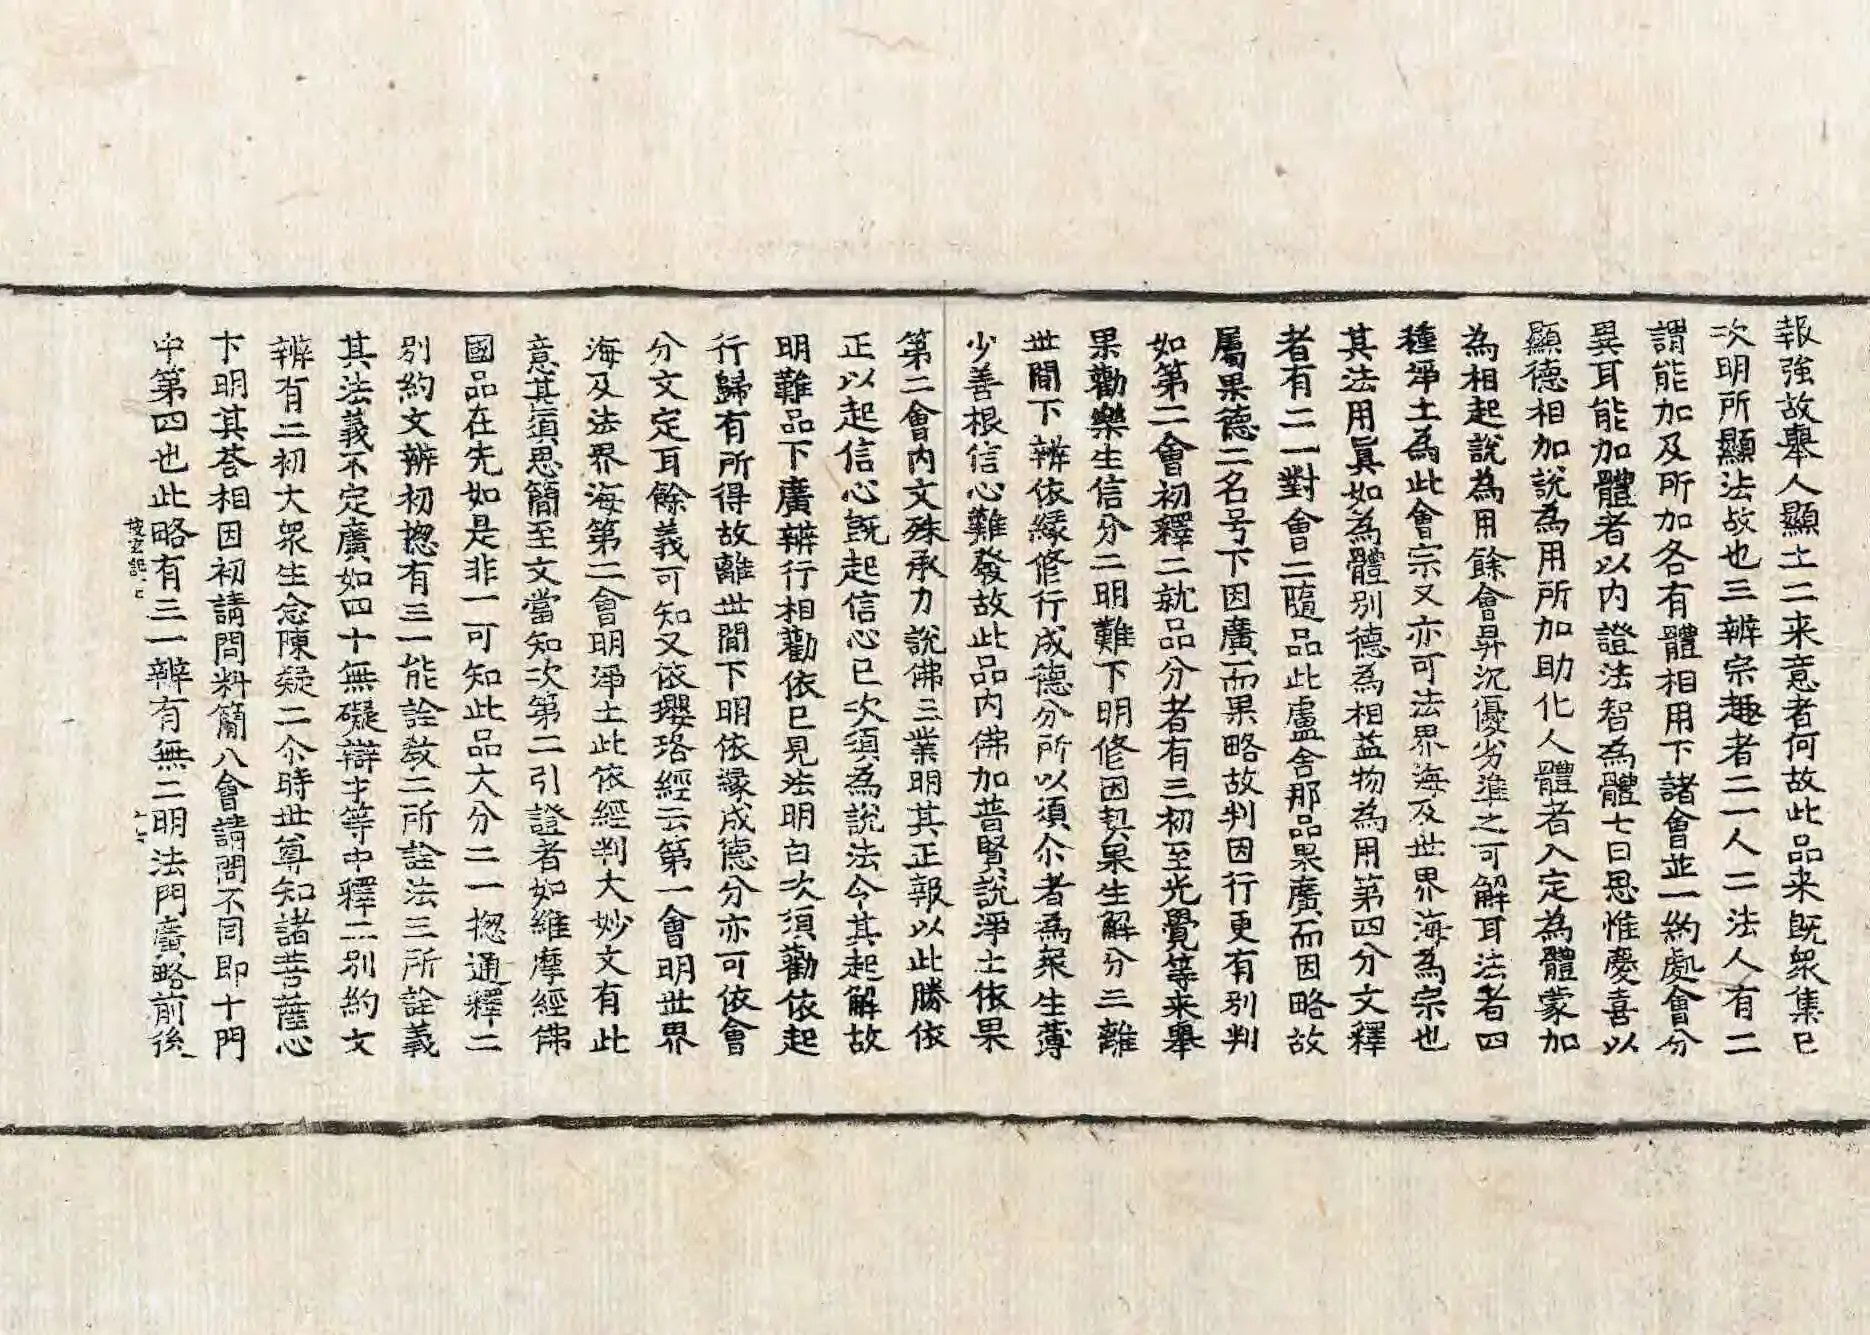 報強故舉人顯土二来意者何故此品来既衆集已
次明所顯法故也三辨宗趣者二一人二法人有二
謂能加及所加各有體相用下諸會並一約處會分
異耳能加體者以内證法智為體七日思惟慶喜以
顯德相加説為用所加助化人體者入定為體蒙加
為相起説為用餘會昇沉優劣準之可解耳法者四
種淨土為此會宗又亦可法界海及世界海為宗也
其法用眞如為體別德為相益物為用第四分文釋
者有二一對會二隨品此盧舎那品果廣而因略故
屬果德二名号下因廣而果略故判因行更有別判
如第二會初釋二就品分者有三初至光覺等来舉
果勸樂生信分二明難下明修因契果生解分三離
世間下辨依緣修行成德分所以須尒者為衆生薄
少善根信心難發故此品内佛加普賢説淨土依果
第二會内文殊承力説佛三業明其正報以此勝依
正以起信心既起信心已次須為説法令其起解故
明難品下廣辨行相勸依已見法明白次須勸依起
行歸有所得故離世間下明依緣成德分亦可依會
分文定耳餘義可知又依瓔珞經云第一會明世界
海及法界海第二會明淨土此依經判大妙文有此
意其須思簡至文當知次第二引證者如維摩經佛
國品在先如是非一可知此品大分二一揔通釋二
別約文辨初揔有三一能詮教二所詮法三所詮義
其法義不定廣如四十無礙辯才等中釋二別約文
辨有二初大衆生念陳疑二尒時世尊知諸菩薩心
下明其荅相因初請問料簡八會請問不同即十門
中第四也此略有三一辨有無二明法門廣略前後